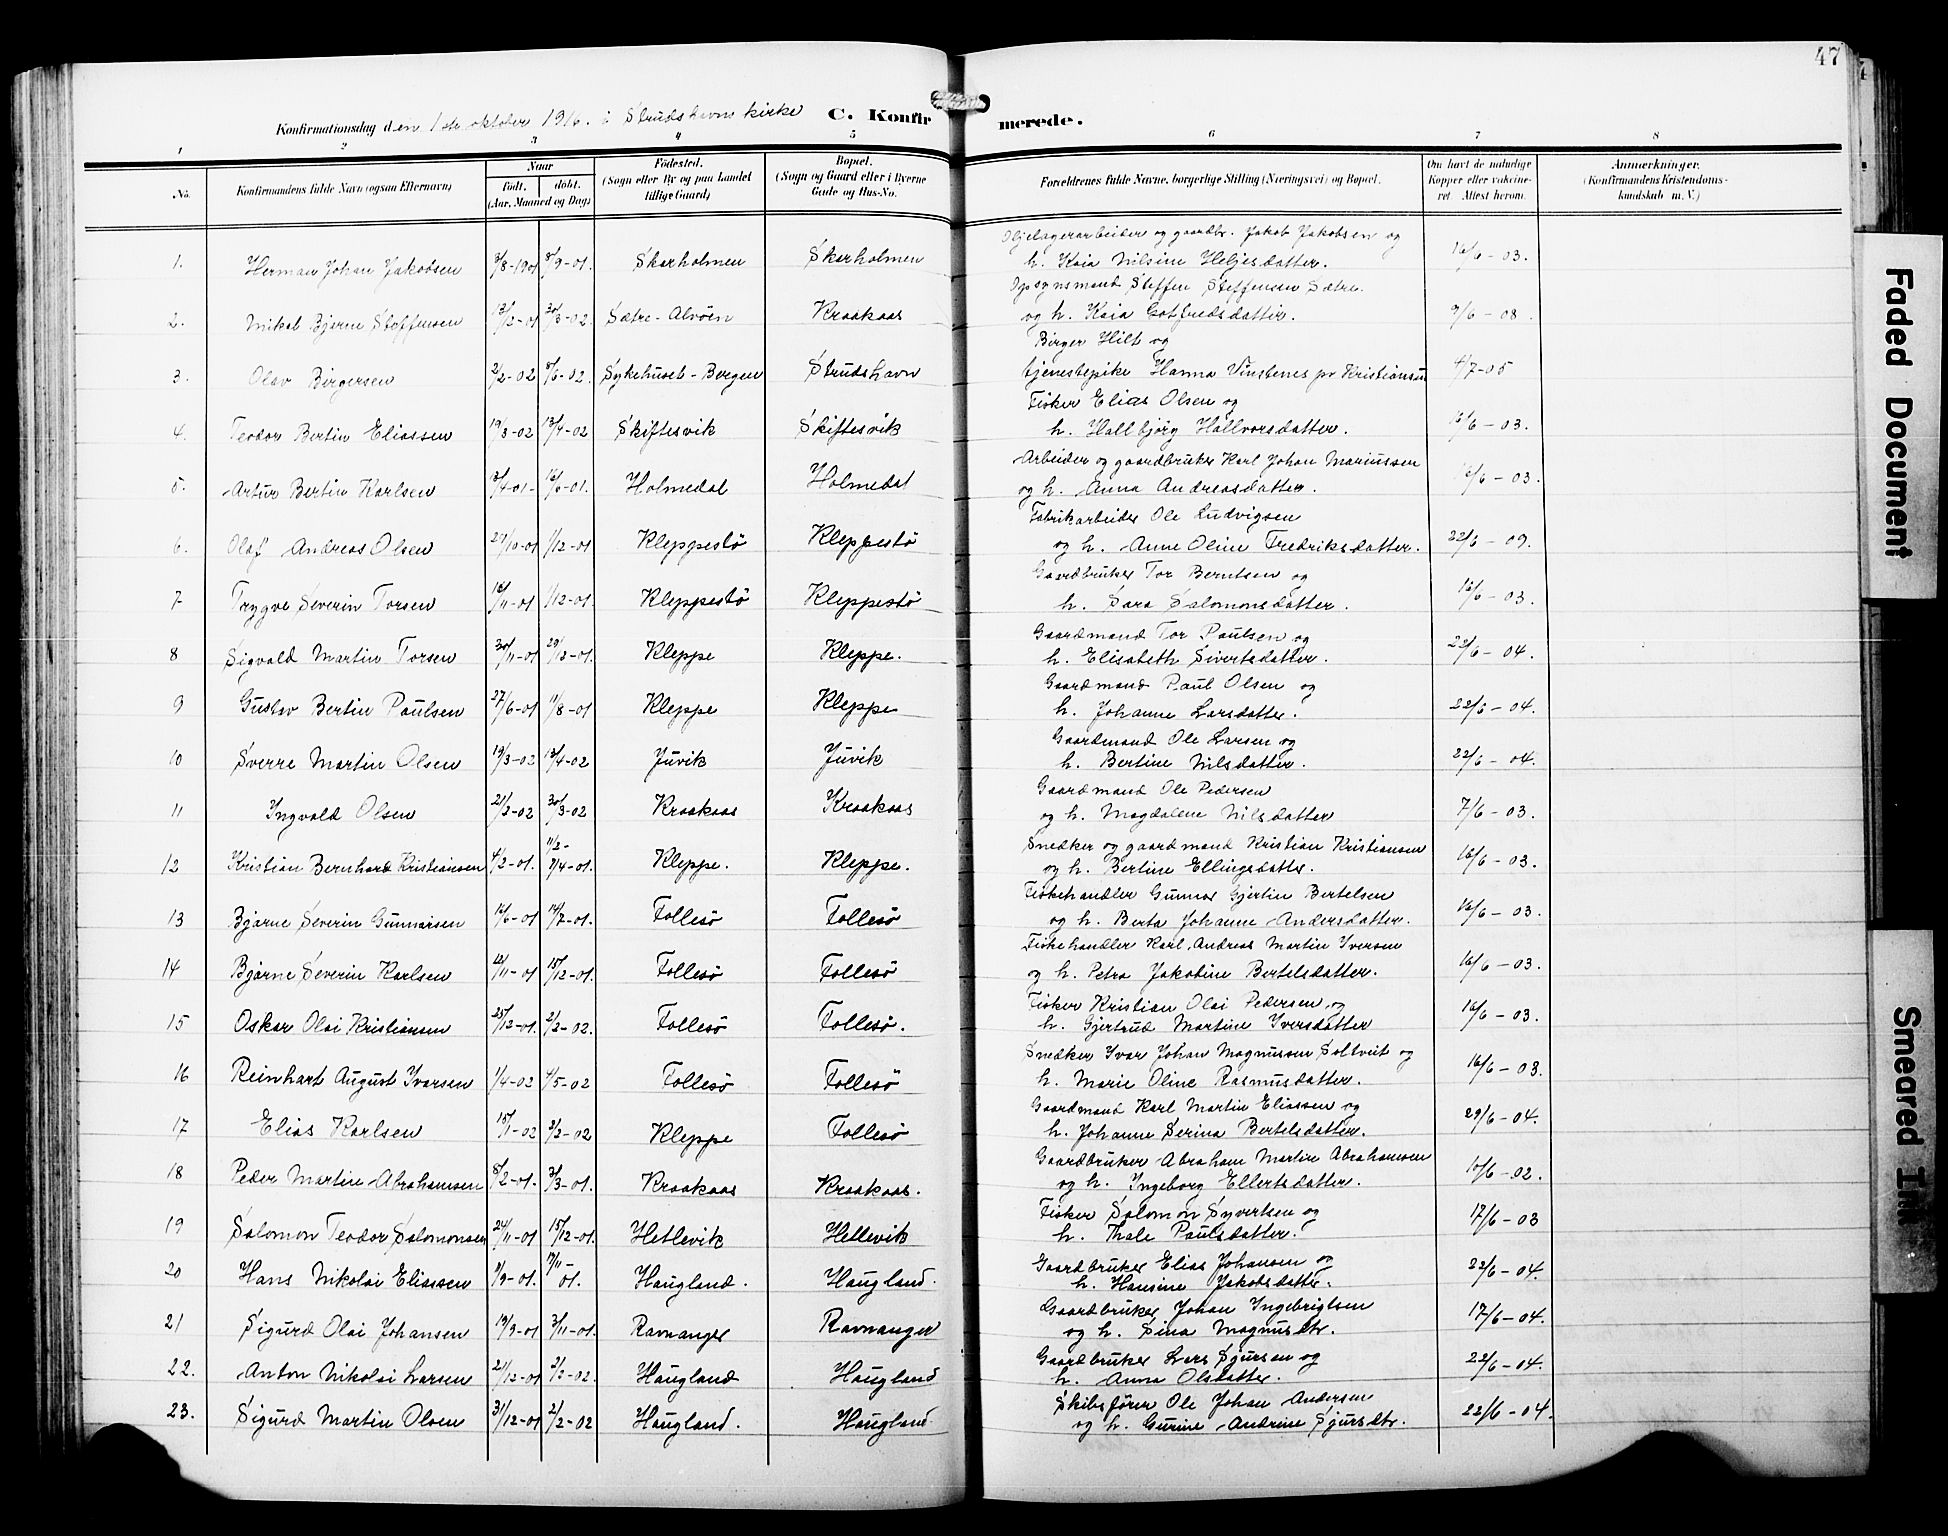 47
Konfirmationsdag den 1ste oktober 1916. i Strudshavns kirke C. Konfirmerede.
1 2 3 4 5 6 7 8
No. Konfirmandens fulde Navn (ogsaa Efternavn) Naar født. døbt. (Aar, Maaned og Dag) Fødested. (Sogn eller By og paa Landet tillige Gaard) Bopæl. (Sogn og Gaard eller i Byerne Gade og Hus-No. Forældrenes fulde Navne, borgerlige Stilling (Næringsvei) og Bopæl. Om havt de naturlige Kopper eller vakcineret. Attest herom. Anmærkninger. (Konfirmandens Kristendomskundskab m. V.)
Oljelagerarbeider og gaardbr. Jakob Jakobsen og
1. Herman Johan Jakobsen 3/8-1901 8/9-01. Skarholmen Skarholmen h. Kaia Nilsine Heljesdatter. 16/6-03.
Opsynsmand Steffen Steffensen Sætre
2. Mikal Bjerne Steffensen 13/12-01 30/3-02. Sætre-Alvøen Kraakaas og h. Kaia Gotfredsdatter. 9/6-08.
Birger Hilt og
3. Olav Birgersen 2/2-02 8/6-02. Sykehuset-Bergen Strudshavn tjenestepike Hanna Vinstenes pr Kristiansun 4/7-05
Fisker Elias Olsen og
4. Teodor Bertin Eliassen 19/3-02 13/4-02 Skiftesvik Skiftesvik h. Hallbjørg Hallvorsdatter. 16/6-03.
Arbeider og gaardbruker Karl Johan Mariussen
5. Artur Bertin Karlsen 13/4-01- 16/6-01. Holmedal Holmedal og h. Anna Andreasdatter. 16/6-03.
Fabrikarbeider Ole Ludvigsen
6. Olaf Andreas Olsen 29/10-01 1/12-01 Kleppestø Kleppestø og h. Anne Oline Fredriksdatter. 22/6-09.
Gaardbruker Tor Berntsen og
7 Trygve Severin Torsen 16/11-01 1/12-01. Kleppestø Kleppestø h. Sara Salomonsdatter. 16/6-03.
Gaardmand Tor Paulsen og
8 Sigvald Martin Torsen 30/11-01 29/12-01. Kleppe Kleppe. h. Elisabeth Sivertsdatter. 22/6-04.
Gaardmand Paul Olsen og
9 Gustav Bertin Paulsen 27/6-01 11/8-01 Kleppe Kleppe h. Johanne Larsdatter. 22/6-04.
Gaardmand Ole Larsen og
10 Sverre Martin Olsen 19/3-02 13/4-02 Juvik Juvik h. Bertine Nilsdatter. 22/6-04.
Gaardmand Ole Pedersen
11 Ingvald Olsen 21/2-02 30/3-02 Kraakaas Kraakaas og h. Magdalene Nilsdatter 7/6-03.
Snedker og gaardmand Kristian Kristiansen
12 Kristian Bernhard Kristiansen 4/2-01. 11/2- 7/4-01. Kleppe. Kleppe. og h. Bertine Ellingsdatter. 16/6-03.
Fiskehandler Gunnar Gjertin Bertelsen
13 Bjarne Severin Gunnarsen 16/6-01 14/7-01. Follesø Follesø og h. Berta Johanne Andersdatter. 16/6-03.
Fiskehandler Karl Andreas Martin Iversen
14 Bjarne Severin Karlsen 22/11-01 15/12-01. Follesø Follesø og h. Petra Jakobine Bertelsdatter. 16/6-03.
Fisker Kristian Olai Pedersen og
15 Oskar Olai Kristiansen 25/12-01. 2/2-02. Follesø Follesø. h. Gjertrud Martine Iversdatter 16/6-03.
Snedker Ivar Johan Magnussen Soltveit og
16 Reinhart August Ivarsen 1/4-02 4/5-02 Follesø Follesø h. Marie Oline Rasmusdatter. 16/6-03.
Gaardmand Karl Martin Eliassen og
17 Elias Karlsen 15/1-02 2/2-02 Kleppe Follesø h. Johanne Serina Bertelsdatter. 29/6-04.
Gaardbruker Abraham Martin Abrahamsen
18 Peder Martin Abrahamsen 8/2-01. 3/3-01. Kraakaas Kraakaas. og h. Ingeborg Ellertsdatter. 10/6-02.
Fisker Salomon Syvertsen og
19 Salomon Teodor Salomonsen 24/11-01 15/12-01. Hetlevik Hetlevik h. Thale Paulsdatter. 17/6-03
Gaardbruker Elias Johansen og
20 Hans Nikolai Eliassen 9/9-01. 17/11-01. Haugland. Haugland. h. Hansine Jakobsdatter. 22/6-04.
Gaardbruker Johan Ingebrigtsen
21 Sigurd Olai Johansen 19/9-01 3/11-01. Ravnanger Ravnanger og h. Sina Magnusdtr. 17/6-04.
Gaardbruker Lars Sjursen og
22. Anton Nikolai Larsen 2/12-01 2/2-02. Haugland Haugland h. Anna Olsdatter. 22/6-04.
Skibsfører Ole Johan Andersen
23. Sigurd Martin Olsen 31/12-01 2/2-02 Haugland. Haugland og h. Gurine Andrine Sjursdtr. 22/6-04.
Faded Document
Smeared Ink